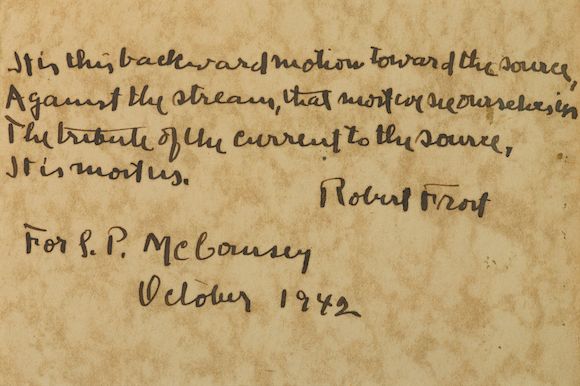 It is this backward motion toward the source,
Against the stream, that most we see ourselves in
The tribute of the current to the source,
It is most us.
Robert Frost
For S. P.
October 1942